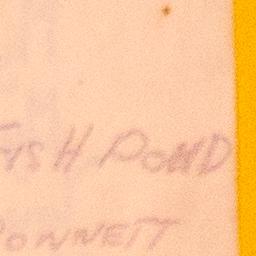 FISH POND
BONNETT